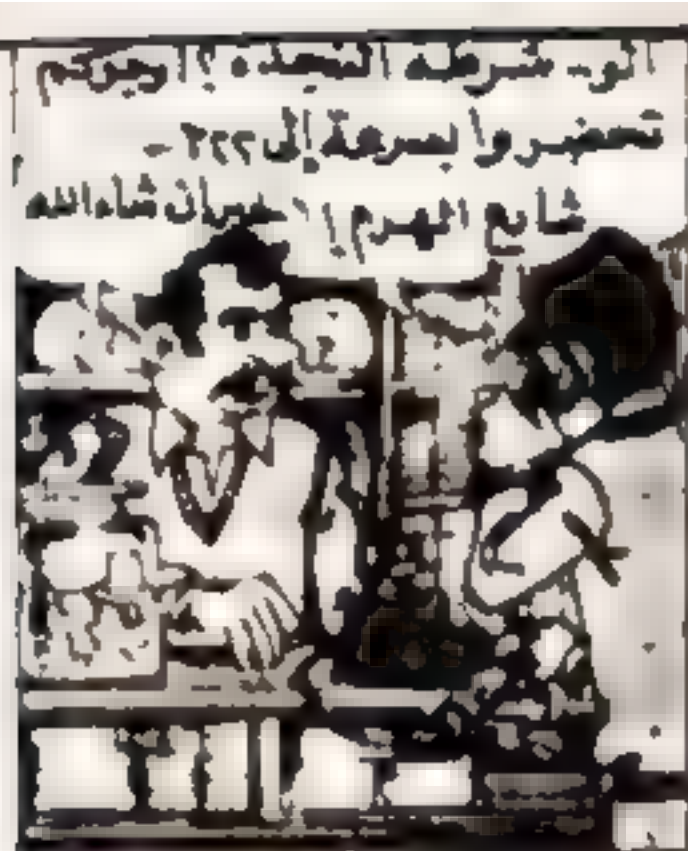 ألو - شرطة النجدة ؟ أرجوكم
تحضروا بسرعة إلى ٢٢٢ -
شارع الهرم ! ان شاء الله